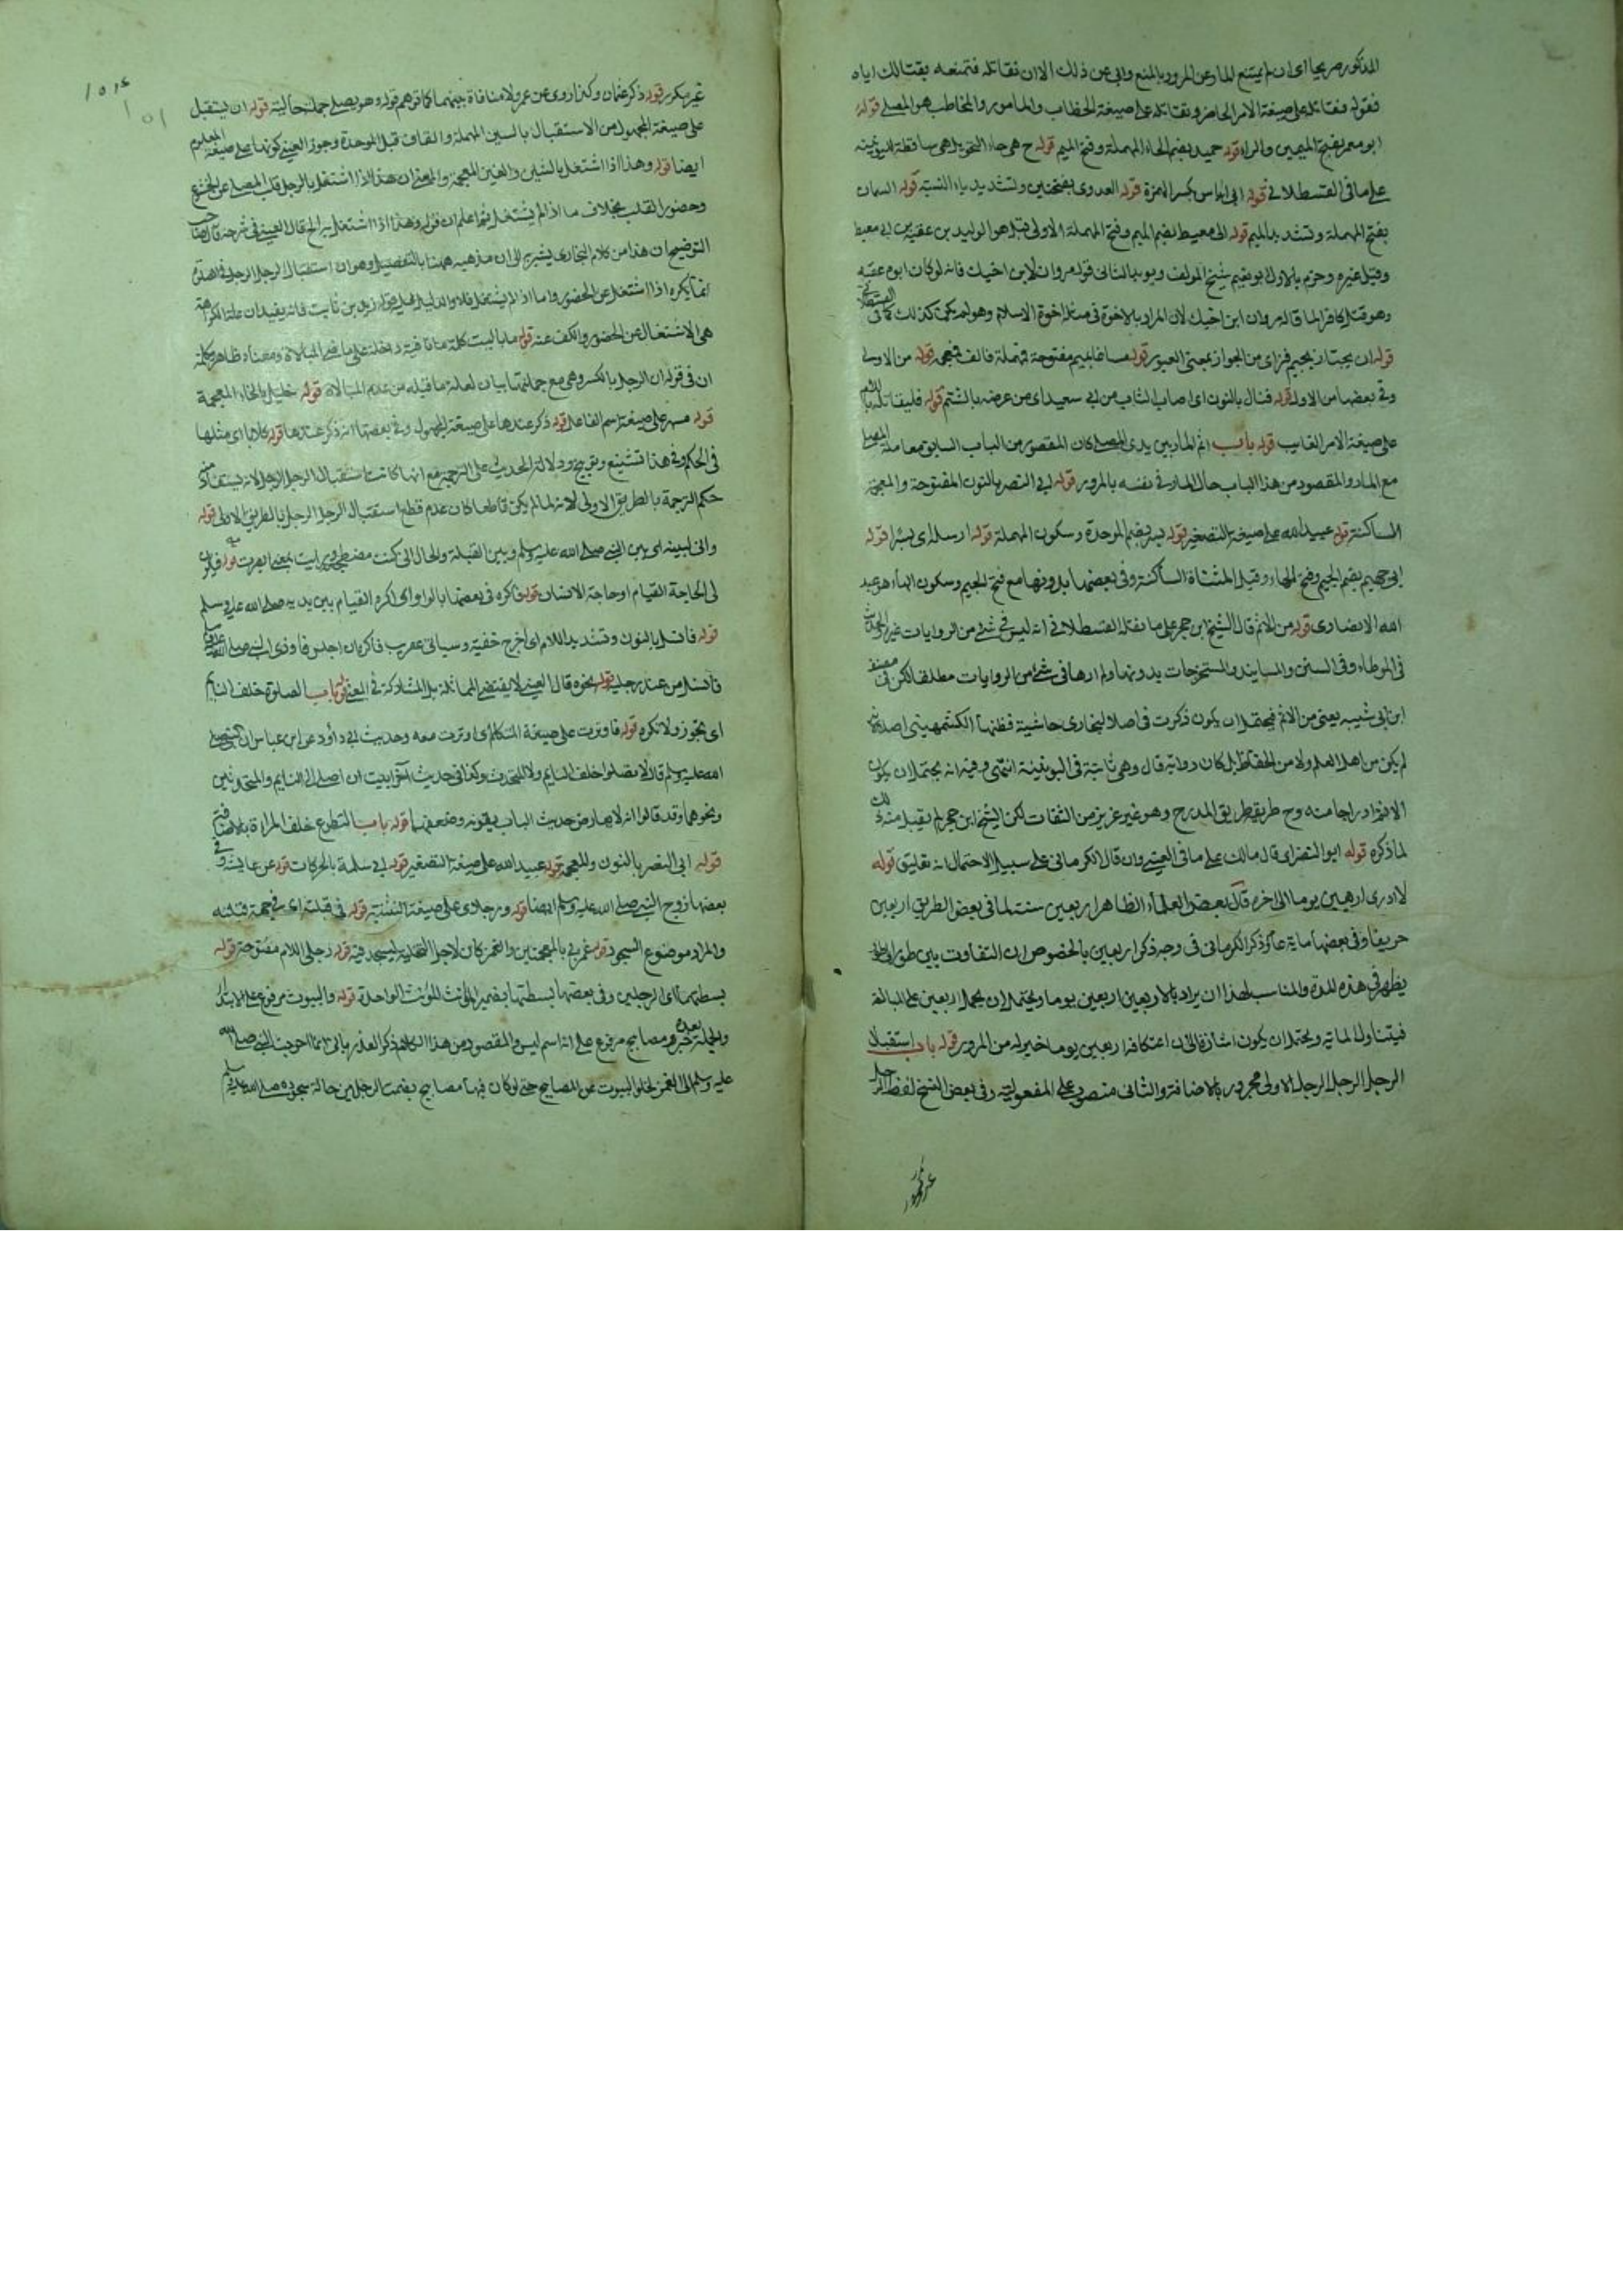 المذكور صريحا اى ان لم يمتنع المار عن المرور بالمنع وابى عن ذلك الا ان نقاتله فتمنعه بقتالك اياه
فقوله فقاتله على صيغة الامر الحاضر ونقاتله على صيغة الخطاب والمامور والمخاطب هو المصلى قوله
ابو معمر بفتح الميمين والراء قوله حميد بضم الحاء المهملة وفتح الميم قوله ح هى حاء التحويل هى ساقطة
على ما فى القسطلانى قوله ابى اياس بكسر الهمزة قوله العدوى بفتحتين وتشديد ياء النسبة قوله السمان
بفتح المهملة وتشديد الميم قوله ابى معيط بضم الميم وفتح المهملة الاولى قيل هو الوليد بن عقبة بن ابى معيط
وقيل غيره وجزم بالاول ابو نعيم شيخ المولف ويويد الثانى قوله مروان لابن اخيك فانه لو كان ابوه عقبه
وهو قتل كافرا لما قال مروان ابن اخيك لان المراد بالاخوة فى مثله اخوة الاسلام وهو لم يكن كذلك كما فى القسطلانى
قوله ان يجتاز بجيم فزاى من الجواز بمعنى العبور قوله مساغا بميم مفتوحة فمهملة فالف فمعجمة قوله من الاولى
وفى بعضها من الاول قوله فنال بالنون اى اصاب الشاب من ابى سعيد اى من عرضه بالشتم قوله فليقاتله باللام
على صيغة الامر الغايب قوله باب اثم المار بين يدى المصلى كان المقصود من الباب السابق معاملة المصلى
مع المار والمقصود من هذا الباب حال المار فى نفسه بالمرور قوله ابى النضر بالنون المفتوحة والمعجمة
الساكنة قوله عبيد الله على صيغة التصغير قوله بسر بضم الموحدة وسكون المهملة قوله ارسله اى بسرا قوله
ابى جهيم بضم الجيم وفتح الهاء وقبل المثناة الساكنة وفى بعضها بدونها مع فتح الجيم وسكون الهاء هو عبد
الله الانصارى قوله من الاثم قال الشيخ ابن حجر على ما نقله القسطلانى انه ليس فى شئ من الروايات غير
فى الموطاء وفى السنن والمسانيد والمستخرجات بدونها ولم ارها فى شئ من الروايات مطلقا لكن فى مصنف
ابن ابى شيبه يعنى من الاثم فيحتمل ان يكون ذكرت فى اصل البخارى حاشية فظنها الكشمهينى اصلا لانه
لم يكن من اهل العلم ولا من الحفاظ بل كان رواية قال وهى ثابتة فى اليونينية انتهى وفيه انه يحتمل ان يكون
الانفراد راجا منه وح طريقه طريق المدرج وهو غير عزيز من الثقات لكن الشيخ ابن حجر لم يقبل منه ذلك
لما ذكره قوله ابو النضر اى قال مالك على ما فى العينى وان قال الكرمانى على سبيل الاحتمال انه تعليق قوله
لا ادرى اربعين يوما الى اخره قال بعض العلماء الظاهر اربعين سنة لما فى بعض الطريق اربعين
خريفا وفى بعضها ماية عام وذكر الكرمانى فى وجه ذكر اربعين بالخصوص ان التفاوت بين
يظهر فى هذه المدة والمناسب لهذا ان يراد بالاربعين اربعين يوما ويحتمل ان يحمل اربعين على المبالغة
فيتناول الماتة ويحتمل ان يكون اشارة الى ان اعتكافه اربعين يوما خير له من المرور قوله باب استقبال
الرجل الرجل الرجل الاولى مجرور بالاضافة والثانى منصوب على المفعولية وفى بعض النسخ لفظ الرجل
غير مكرر قوله ذكر عثمان وكذا روى عن عمر ولا منافاة بينهما كما توهم قوله وهو يصلى جملة حالية قوله ان يستقبل
على صيغة المجهول من الاستقبال بالسين المهملة والقاف قبل الموحدة وجوز العينى كونها على صيغة المعلوم
ايضا قوله وهذا اذا اشتغل بالشين والغين المعجمة والمعنى ان هذا اذا اشتغل بالرجل قلب المصلى عن الخشوع
وحضور القلب بخلاف ما اذا لم يشتغل ثم اعلم ان قوله وهذا اذا اشتغل به الخ قال العينى فى شرحه قال صاحب
التوضيح ان هذا من كلام البخارى يشير به الى ان مذهبه ههنا بالتفصيل وهو ان استقبال الرجل الرجل فى الصلاة
انما يكره اذا اشتغل عن الحضور واما اذا لم يشتغل فلا والدليل عليه قول زيد بن ثابت فانه يفيد ان علة الكراهة
هى الاشتغال عن الحضور والكف عنه قوله ما باليت كلمة ما نافية داخلة على ماضى المبالاة ومعناه ظاهر وكلمة
ان فى قوله ان الرجل بالكسر وهى مع جملتها بيان لعلة ما قبله من عدم المبالاة قوله خليل بالخاء المعجمة
قوله مسهر على صيغة اسم الفاعل قوله ذكر عندها على صيغة المجهول وفى بعضها انه ذكر عندها قوله كلابا اى مثلها
فى الحكم وفى هذا تشنيع وتوبيخ ودلالة الحديث على الترجمة مع انها كانت استقبال الرجل الرجل لانه يستفاد منه
حكم الترجمة بالطريق الاولى لانه لما لم يكن قاطعا كان عدم قطع استقبال الرجل الرجل بالطريق الاولى قوله
وانى لبينه اى بين النبى صلى الله عليه وسلم وبين القبلة والحال انى كنت مضطجعة ورايت بمعنى ابصرت قوله فيكون
لى الحاجة القيام او حاجة الانسان قوله فاكره فى بعضها بالواو اى اكره القيام بين يديه صلى الله عليه وسلم
قوله فانسل بالنون وتشديد اللام اى اخرج خفية وسياتى عن قريب فاكره ان اجلس فاوذى النبى صلى الله عليه وسلم
فانسل من عند رجليه قوله نحوه قال العينى لا يقتضى المماثلة بل المشاركة فى المعنى قوله باب الصلوة خلف النايم
اى تجوز ولا تكره قوله فاوترت على صيغة المتكلم اى اوترت معه وحديث ابى داؤد عن ابن عباس ان النبى صلى
الله عليه وسلم قال لا تصلوا خلف النايم ولا المتحدث وكذا فى حديث آخر نهيت ان اصلى الى النيام والمتحدثين
ونحوهما وقد قالوا انه لا يعارض حديث الباب بقوته وضعفها قوله باب التطوع خلف المراة
قوله ابى النضر بالنون والمعجمة قوله عبيد الله على صيغة التصغير قوله ابى سلمة بالحركات قوله عن عايشة وفى
بعضها زوج النبى صلى الله عليه وسلم ايضا قوله ورجلاى على صيغة التثنية قوله فى قبلته اى فى جهة قبلته
والمراد موضوع السجود قوله غمزنى بالمعجمتين والغمز كان لاجل التخلية ليسجد فيه قوله رجلى اللام مفتوحة قوله
بسطتهما اى الرجلين وفى بعضها بسطتها بضمير المؤنث للمؤنث الواحدة قوله والبيوت مرفوع على الابتداء
والجملة بعده خبره ومصابيح مرفوع على انه اسم ليس والمقصود من هذا الكلام ذكر العذر بانى انما احوجت النبى صلى الله
عليه وسلم الى الغمز لخلو البيوت عن المصابيح حتى لو كان فيها مصابيح بضمت الرجلين حالة سجوده صلى الله عليه وسلم